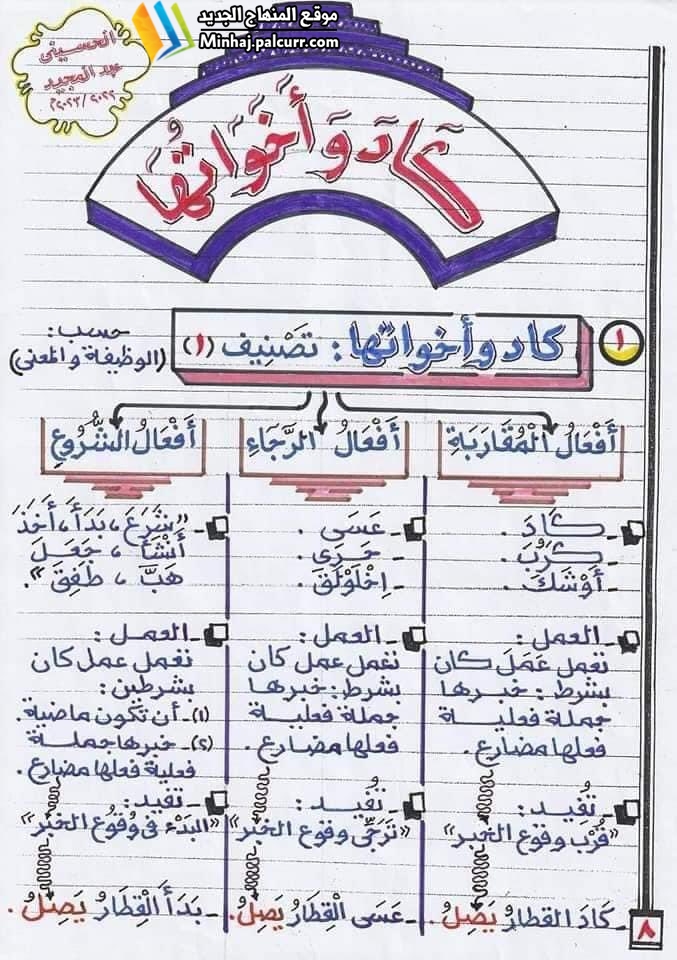 موقع المنهاج الجديد
Minhaj.palcurr.com
الحسيني
عبد المجيد
٢٠٢٢/٢٠٢٣م
كَادَ وَأَخَوَاتُهَا
١
كاد وأخواتها: تَصْنِيف (١)
حسب:
(الوظيفة والمعنى)
أَفْعَالُ الْمُقَارَبَةِ
- كَادَ .
- كَرُبَ .
- أَوْشَكَ .
- العمل :
تعمل عَمَلَ كان
بشرط : خبرها
جملة فعلية
فعلها مضارع .
- تُفِيد :
"قُرْبَ وقوع الخبر"
- كَادَ القطارُ يَصِلُ .
أَفْعَالُ الرَّجَاءِ
- عَسَى .
- حَرَى .
- اِخْلَوْلَقَ .
- العمل :
تعمل عمل كان
بشرط : خبرها
جملة فعلية
فعلها مضارع .
- تُفِيد :
"تَرَجِّي وقوع الخبر"
- عَسَى القِطَارُ يَصِلُ .
أَفْعَالُ الشُّرُوعِ
- "شَرَعَ ، بَدَأَ ، أَخَذَ
أَنْشَأَ ، جَعَلَ
هَبَّ ، طَفِقَ" .
- العمل :
تعمل عمل كان
بشرطين :
(١)- أن تكون ماضية .
(٢)- خبرها جملة
فعلية فعلها مضارع .
- تفيد :
"البَدْء في وُقُوعِ الخبر"
- بَدَأَ الْقِطَارُ يَصِلُ .
٨